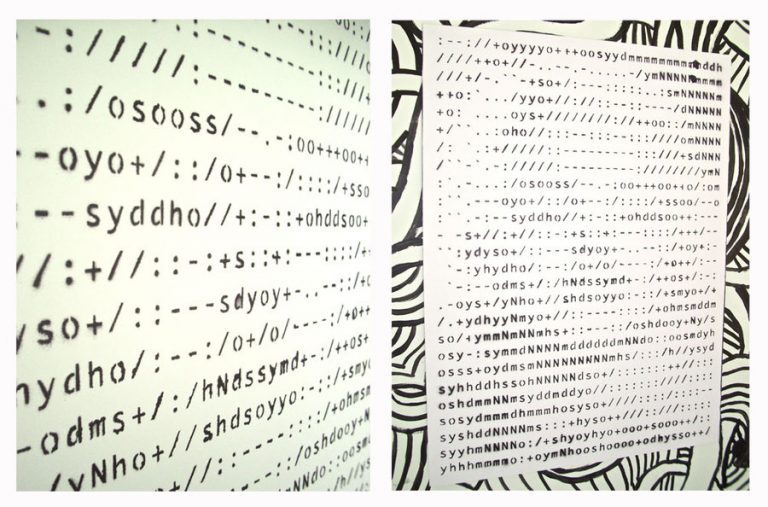 ://///:
.:/osooss/--.-:oo+++oo++
--oyo+/::/o+--:/::::/+sso
:--syddho//+:-::+ohddsoo+
//:+//::-:+s::+:---::::/+
yso+/::---sdyoy+-..--::/+
hydho/:--:/o+/o/----:/+o++
-odms+/:/hNdssymd+-:/++os+
/yNho+//shdsoyyo:-::/+smyo
:--://+oyyyyo+++oosyydmmmmmmmmmmddh
////++o+//-..--..-.....-/ymNNNNmmmmm
////+/-.``-+so+/:---:::::-..:smNNNNNm
++o:`.../yyo+//::/::--::----/dNNNNN
+o:`....oys+/////////://++oo::/mNNNN
+/``..:oho//::---::---:::://///omNNN
/`.`.:+/////:::--------:::///+sdNNN
/``-`.://///:---------://///////ymN
:`.-.::/osooss/--.-:oo+++oo++o/:om
:`.---oyo+/::/o+--:/::::/+ssoo/--o
:`.:--syddho//+:-::+ohddsoo+::::--
-`s+//:+//::-:+s::+:---::::/+++/--
``:ydyso+/::---sdyoy+-..--::/+oy+:
`-:yhydho/:--:/o+/o/----:/+o++/:
`-:--odms+/:/hNdssymd+-:/++os+/:-
.-oys+/yNho+//shdsoyyo:-::/+smyo+/+
/.+ydhyyNmyo+//::----::::/+ohmsmddm
so/+ymmNmNNmhs+::---::/oshdooy+Ny/s
osy-:symmdNNNNmddddddmNNdo::oosmdyh
osss+oydmsmNNNNNNNNNmhs/:::/h//ysyd
syhhddhssohNNNNNdso+/:::::::++//:::
oshdmmNNmsyddmddyo//:::::://::::::
sosydmmmdhmmmhosyso+////::::://::::
syshddNNNNms:::+hyso++///:::://////
syyhmNNNNo:/+shyoyhyo+ooo+sooo++/:
yhhhmmmmo:+oymNhooshoooo+odhysso++/